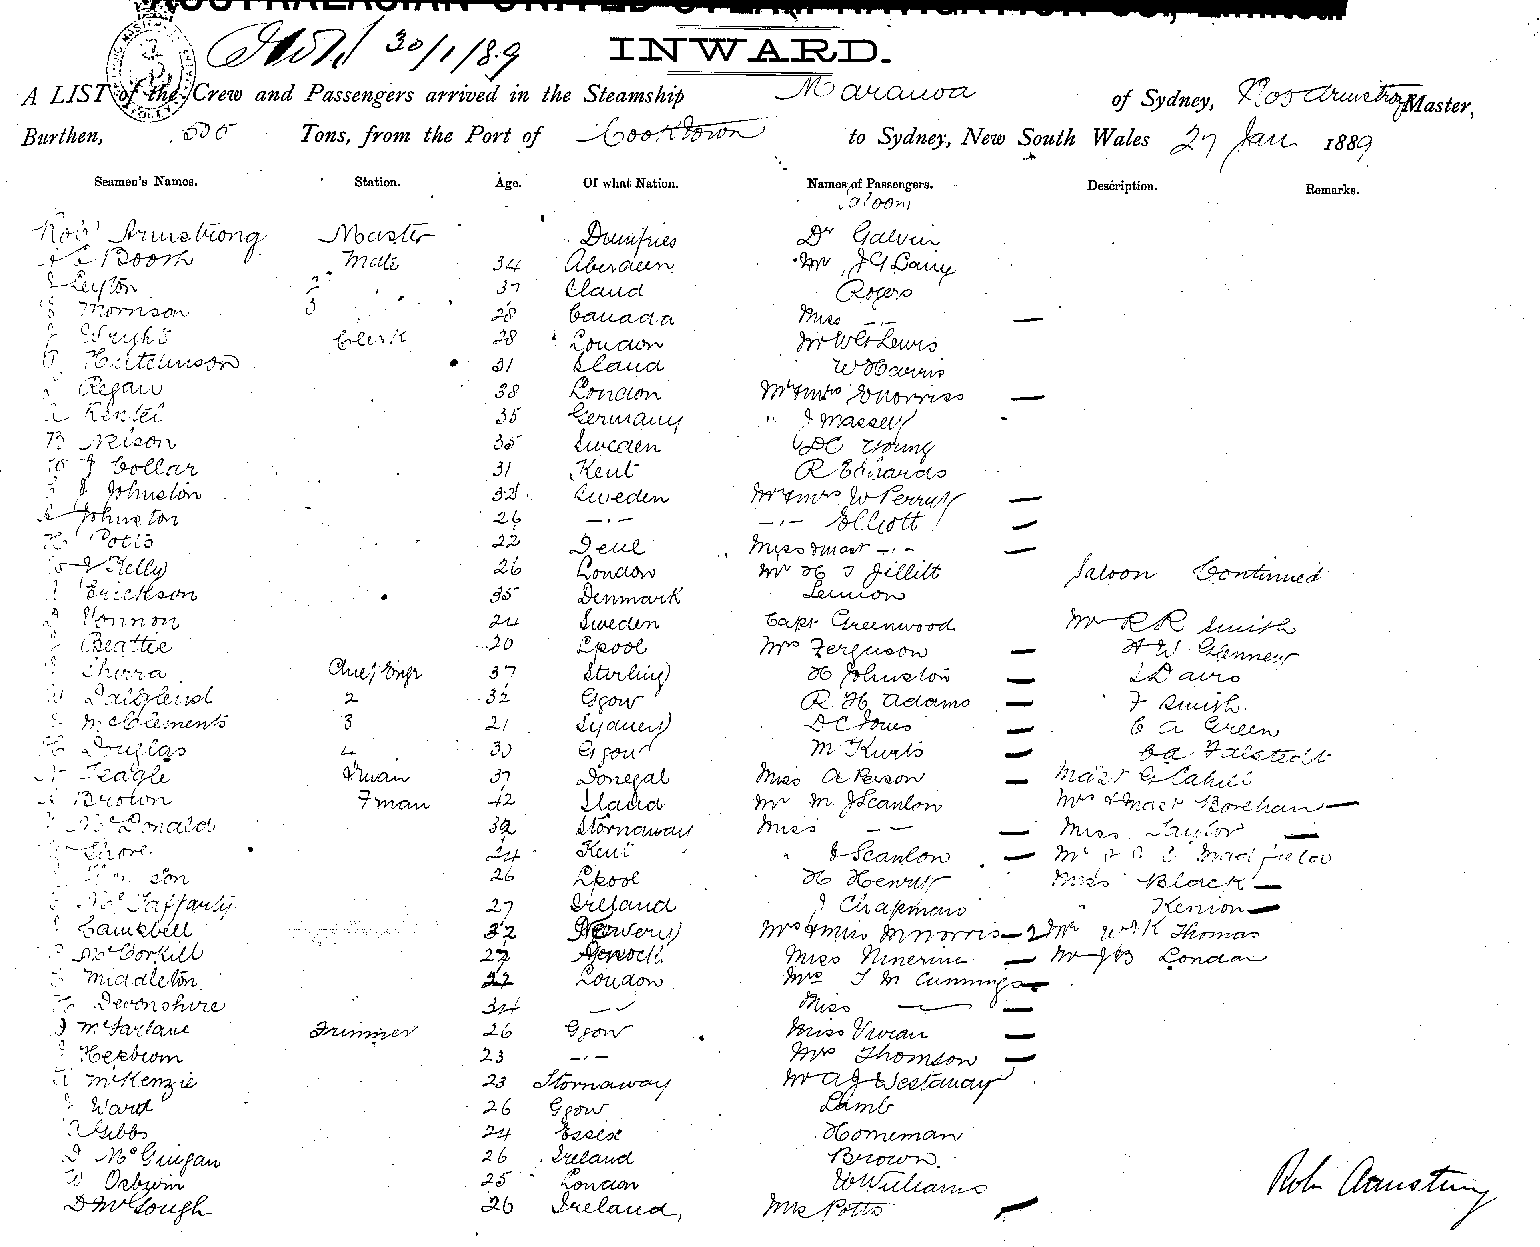 AUSTRALASIAN UNITED STEAM NAVIGATION CO., Limited.
30/1/89
INWARD.
A LIST of the Crew and Passengers arrived in the Steamship Maranoa of Sydney, Rob Armstrong Master,
Burthen, 505 Tons, from the Port of Cooktown to Sydney, New South Wales 27 Jan 1889
Seamen's Names. Station. Age. Of what Nation. Names of Passengers. Description. Remarks.
Saloon
Robt Armstrong Master Dumfries Dr Galvin
Booth Mate 34 Aberdeen Mr J G
Leyton 2 " 37 Rogers
Morrison 3 " 28 Canada Miss -"-
Wright Clerk 28 London Mr W G Lewis
Hutchinson 31 W Harris
Regan 38 London Mr & Mrs Morriss
35 Germany " J Massey
Nelson 35 Sweden D C Young
J Collar 31 Kent R Edwards
J Johnston 32 Sweden Mr & Mrs W Perry
Johnston 26 -"- -"- Elliott
Potts 22 Deal Miss & Mast -"-
J Kelly 26 London Mr H S Jillitt Saloon Continued
Erickson 35 Denmark Lennon
24 Sweden Capt Greenwood Mr R R Smith
Beattie 20 Lpool Mrs Ferguson H W Glennew
Shirra Chief Engr 37 Stirling H Johnston S Davis
W Dalgleish 2 32 Ggow R H Adams F Smith
McClements 3 21 Sydney D C Jones C A Green
H Douglas 4 30 Ggow M Kurts C A Falstedt
Teagle 37 Donegal Miss A Person Mast G Cahill
Brown Fman 42 Mr M J Scanlon Mrs & Mast Boreham
McDonald 32 Stornaway Miss -"- Miss Taylor
Shore 24 Kent J Scanlon
26 Lpool H Hewitt Miss Black
McLafferty 27 Ireland J Chapman " Kenion
Campbell 32 Newery Mrs & Miss M Morris 2 Mr W K Thomas
McCorkill 27 Gnock Miss Ninerine Mr J B London
Middleton 22 London Mrs T M Cummings
H Devonshire 34 " Miss "
J McFarlane Trimmer 26 Ggow Miss Vivian
Hepburn 23 -"- Mrs Thomson
McKenzie 23 Stornaway Mr A J Westaway
Ward 26 Ggow Lamb
Gibbs 24 Essex Horneman
D McGuigan 26 Ireland Brown
W 25 London W Williams
D McGough 26 Ireland, Mrs Potts
Robt Armstrong